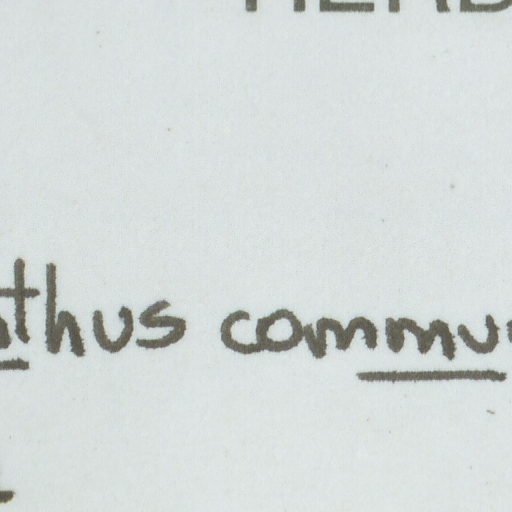 HERB
nthus commun